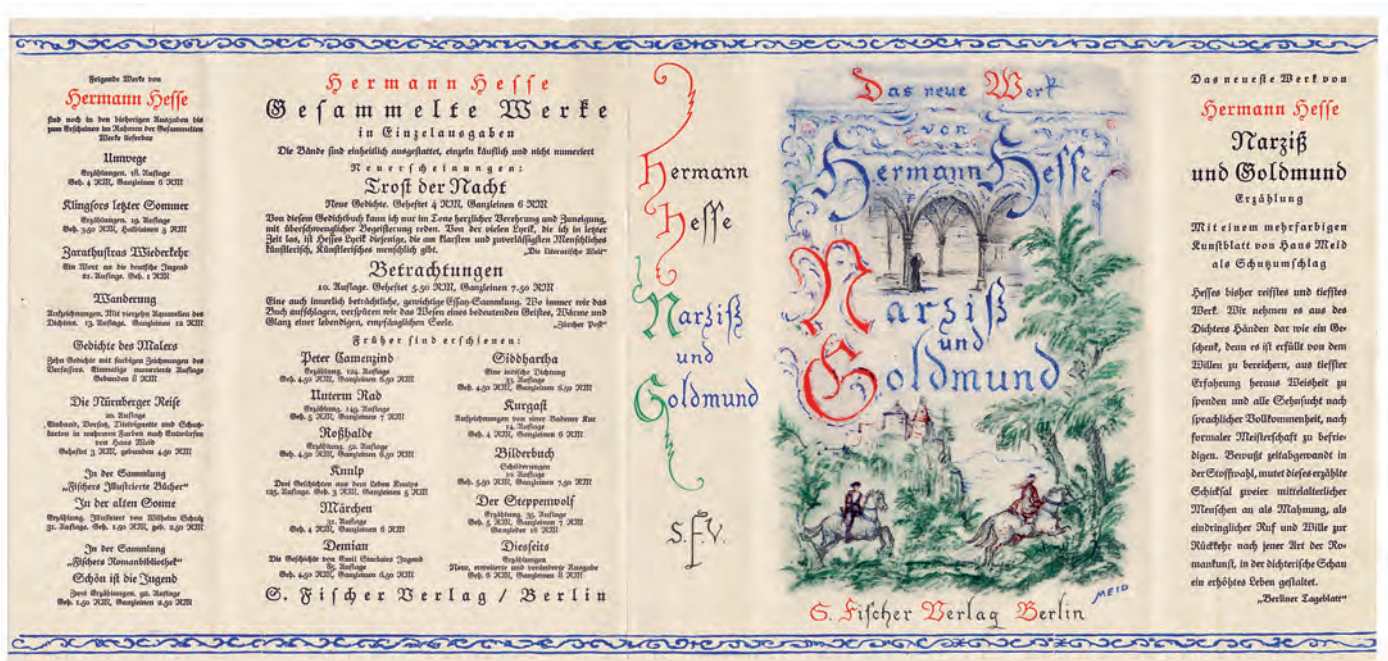 Folgende Werke von
Hermann Hesse
sind noch in den bisherigen Ausgaben bis
zum Erscheinen im Rahmen der Gesammelten
Werke lieferbar
Umwege
Erzählungen. 18. Auflage
Geh. 4 RM, Ganzleinen 6 RM
Klingsors letzter Sommer
Erzählungen. 19. Auflage
Geh. 3.50 RM, Halbleinen 5 RM
Zarathustras Wiederkehr
Ein Wort an die deutsche Jugend
21. Auflage. Geh. 1 RM
Wanderung
Aufzeichnungen. Mit vierzehn Aquarellen des
Dichters. 13. Auflage. Ganzleinen 12 RM
Gedichte des Malers
Zehn Gedichte mit farbigen Zeichnungen des
Verfassers. Einmalige numerierte Auflage
Gebunden 8 RM
Die Nürnberger Reise
20. Auflage
Einband, Vorsatz, Titelvignette und Schutz-
karten in mehreren Farben nach Entwürfen
von Hans Meid
Geheftet 3 RM, gebunden 4.50 RM
In der Sammlung
„Fischers Illustrierte Bücher“
In der alten Sonne
Erzählung. Illustriert von Wilhelm Schulz
31. Auflage. Geh. 1.50 RM, geb. 2.50 RM
In der Sammlung
„Fischers Romanbibliothek“
Schön ist die Jugend
Zwei Erzählungen. 92. Auflage
Geh. 1.50 RM, Ganzleinen 2.50 RM
Hermann Hesse
Gesammelte Werke
in Einzelausgaben
Die Bände sind einheitlich ausgestattet, einzeln käuflich und nicht numeriert
Neuerscheinungen:
Trost der Nacht
Neue Gedichte. Geheftet 4 RM, Ganzleinen 6 RM
Von diesem Gedichtbuch kann ich nur im Tone herzlicher Verehrung und Zuneigung,
mit überschwenglicher Begeisterung reden. Von der vielen Lyrik, die ich in letzter
Zeit las, ist Hesses Lyrik diejenige, die am klarsten und zuverlässigsten Menschliches
künstlerisch, Künstlerisches menschlich gibt. „Die literarische Welt“
Betrachtungen
10. Auflage. Geheftet 5.50 RM, Ganzleinen 7.50 RM
Eine auch innerlich beträchtliche, gewichtige Essay-Sammlung. Wo immer wir das
Buch aufschlagen, verspüren wir das Wesen eines bedeutenden Geistes, Wärme und
Glanz einer lebendigen, empfänglichen Seele. „Zürcher Post“
Früher sind erschienen:
Peter Camenzind
Erzählung. 124. Auflage
Geh. 4.50 RM, Ganzleinen 6.50 RM
Unterm Rad
Erzählung. 149. Auflage
Geh. 5 RM, Ganzleinen 7 RM
Roßhalde
Erzählung. 52. Auflage
Geh. 4.50 RM, Ganzleinen 6.50 RM
Knulp
Drei Geschichten aus dem Leben Knulps
125. Auflage. Geh. 3 RM, Ganzleinen 5 RM
Märchen
31. Auflage
Geh. 4 RM, Ganzleinen 6 RM
Demian
Die Geschichte von Emil Sinclairs Jugend
85. Auflage
Geh. 4.50 RM, Ganzleinen 6.50 RM
Siddhartha
Eine indische Dichtung
33. Auflage
Geh. 4.50 RM, Ganzleinen 6.50 RM
Kurgast
Aufzeichnungen von einer Badener Kur
14. Auflage
Geh. 4 RM, Ganzleinen 6 RM
Bilderbuch
Schilderungen
10. Auflage
Geh. 5.50 RM, Ganzleinen 7.50 RM
Der Steppenwolf
Erzählung. 35. Auflage
Geh. 5 RM, Ganzleinen 7 RM
Ganzleder 16 RM
Diesseits
Erzählungen
Neue, erweiterte und veränderte Ausgabe
Geh. 6 RM, Ganzleinen 8 RM
S. Fischer Verlag / Berlin
Hermann
Hesse
Narziß
und
Goldmund
S.F.V.
Das neue Werk
von
Hermann Hesse
Narziß
und
Goldmund
MEID
S. Fischer Verlag Berlin
Das neueste Werk von
Hermann Hesse
Narziß
und Goldmund
Erzählung
Mit einem mehrfarbigen
Kunstblatt von Hans Meid
als Schutzumschlag
Hesses bisher reifstes und tiefstes
Werk. Wir nehmen es aus des
Dichters Händen dar wie ein Ge-
schenk, denn es ist erfüllt von dem
Willen zu bereichern, aus tiefster
Erfahrung heraus Weisheit zu
spenden und alle Sehnsucht nach
sprachlicher Vollkommenheit, nach
formaler Meisterschaft zu befrie-
digen. Bewußt zeitabgewandt in
der Stoffwahl, mutet dieses erzählte
Schicksal zweier mittelalterlicher
Menschen an als Mahnung, als
eindringlicher Ruf und Wille zur
Rückkehr nach jener Art der Ro-
mankunst, in der dichterische Schau
ein erhöhtes Leben gestaltet.
„Berliner Tageblatt“